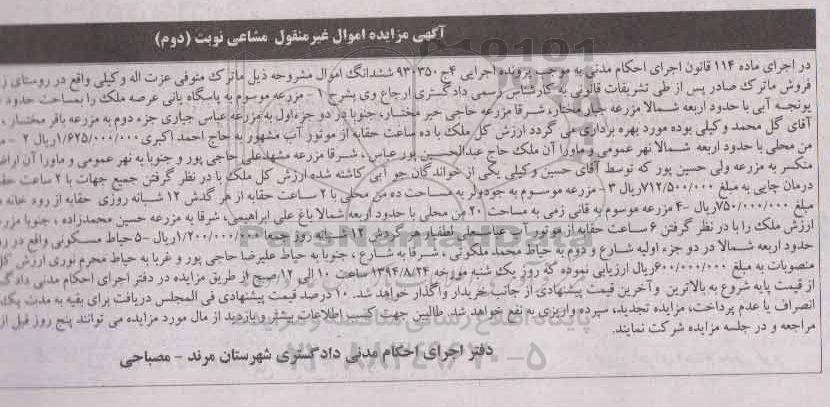 آگهی مزایده اموال غیرمنقول مشاعی نوبت (دوم)
در اجرای ماده ۱۱۴ قانون اجرای احکام مدنی به موجب پرونده اجرایی ۴ج ۹۳۰۳۵۰ ششدانگ اموال مشروحه ذیل ماترک متوفی عزت اله وکیلی واقع در روستای
فروش ماترک صادر پس از طی تشریفات قانونی به کارشناس رسمی دادگستری ارجاع وی بشرح ۱ - مزرعه موسوم به پاسگاه یانی عرصه ملک را بمساحت حدود
یونجه آبی با حدود اربعه شمالا مزرعه جبار مختار، شرقا مزرعه حاجی حیر مختار، جنوبا در دو جزء اول به مزرعه عباس جباری جزء دوم به مزرعه باقر مختار،
آقای گل محمد وکیلی بوده مورد بهره برداری می گردد ارزش کل ملک با ده ساعت حقابه از موتور آب مشهور به حاج احمد اکبری ۱/۶۲۵/۰۰۰/۰۰۰ریال ۲ -
من محلی با حدود اربعه شمالا نهر عمومی و ماورا آن ملک حاج عبدالحسین پور عباس، شرقا مزرعه مشهدعلی حاجی پور و جنوبا به نهر عمومی و ماورا آن
منکسر به مزرعه ولی حسین پور که توسط آقای حسین وکیلی یکی از خواندگان جو آبی کاشته شده ارزش کل ملک با در نظر گرفتن جمیع جهات با ۲ ساعت
درمان چایی به مبلغ ۷۱۲/۵۰۰/۰۰۰ریال ۳ - مزرعه موسوم به جودولر به مساحت ده من محلی با ۲ ساعت حقابه از هر گدش ۱۲ شبانه روزی حقابه از رود خانه
مبلغ ۷۵۰/۰۰۰/۰۰۰ریال -۴ مزرعه موسوم به قانی زمی به مساحت ۲۰ من محلی با حدود اربعه شمالا باغ علی ابراهیمی، شرقا به مزرعه حسین محمدزاده ، جنوبا
ارزش ملک را با در نظر گرفتن ۶ ساعت حقابه از موتور آب عباسعلی لطفیار هر گردش ۱۲ شبانه روز جمعا ۱/۲۰۰/۰۰۰/۰۰۰ریال -۵ حیاط مسکونی واقع در
حدود اربعه شمالا در دو جزء اولیه شارع و دوم به حیاط محمد ملکوتی ، شرقا به شارع ، جنوبا به حیاط علیرضا حاجی پور و غربا به حیاط محرم نوری ارزش
منصوبات به مبلغ ۶۰۰/۰۰۰/۰۰۰ریال ارزیابی نموده که روز یک شنبه مورخه ۱۳۹۴/۸/۲۴ ساعت ۱۰ الی ۱۲/صبح از طریق مزایده در دفتر اجرای احکام مدنی
از قیمت پایه شروع به بالاترین و آخرین قیمت پیشنهادی از جانب خریدار واگذار خواهد شد. ۱۰ درصد قیمت پیشنهادی فی المجلس دریافت برای بقیه به مدت
انصراف یا عدم پرداخت، مزایده تجدید، سپرده واریزی به نفع خواهد شد. طالبین جهت کسب اطلاعات بیشتر و بازدید از مال مورد مزایده می توانند پنج روز قبل از
مراجعه و در جلسه مزایده شرکت نمایند.
دفتر اجرای احکام مدنی دادگستری شهرستان مرند - مصباحی